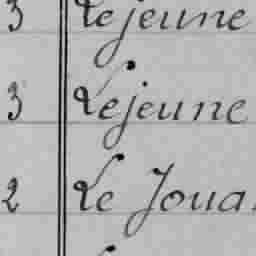 3 Lejeune
3 Lejeune
2 Le Joua